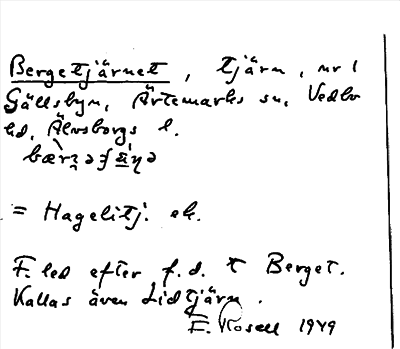 Bergetjärnet, tjärn, nr 1
Gällsbyn, Ärtemarks sn, Vedbo
hd, Älvsborgs l.
= Hagelitj. ek.
F. led efter f.d. t Berget.
Kallas även Lidtjärn.
E. Rosell 1949